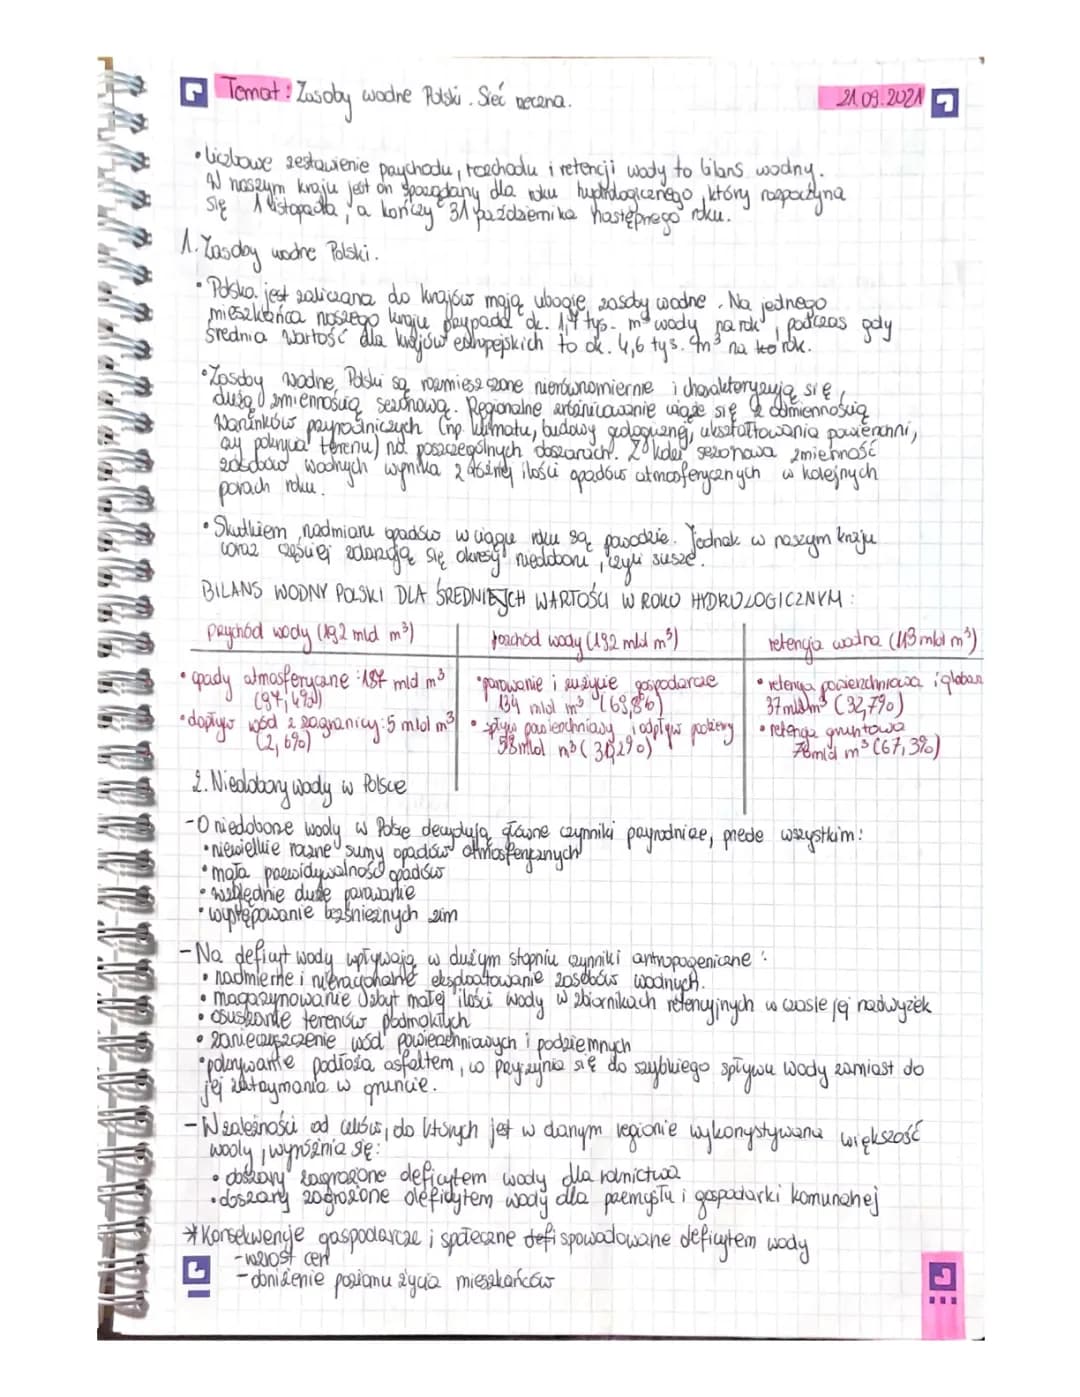 Temat: Zasoby wodne Polski. Sieć rzeczna.
21.09.2021
• Liczbowe zestawienie przychodu, rozchodu i retencji wody to bilans wodny.
W naszym kraju jest on sporządzany dla roku hydrologicznego, który rozpoczyna
się 1 listopada, a kończy 31 października następnego roku.
1. Zasoby wodne Polski.
• Polska jest zaliczana do krajów mają ubogie zasoby wodne. Na jednego
mieszkańca naszego kraju przypada ok. 1,7 tys. m³ wody na rok, podczas gdy
średnia wartość dla krajów europejskich to ok. 4,6 tys. m³ na rok.
• Zasoby wodne Polski są rozmieszczone nierównomiernie i charakteryzują się
dużą zmiennością sezonową. Regionalne zróżnicowanie wiąże się z odmiennością
warunków przyrodniczych (np. klimatu, budowy geologicznej, ukształtowania powierzchni,
czy pokrycia terenu) na poszczególnych obszarach. Z kolei sezonowa zmienność
zasobów wodnych wynika z różnej ilości opadów atmosferycznych w kolejnych
porach roku.
• Skutkiem nadmiaru opadów w ciągu roku są powodzie. Jednak w naszym kraju
coraz częściej zdarzają się okresy niedoboru, czyli susze.
BILANS WODNY POLSKI DLA ŚREDNICH WARTOŚCI W ROKU HYDROLOGICZNYM:
przychód wody (192 mld m³)
rozchód wody (192 mld m³)
retencja wodna (113 mld m³)
• opady atmosferyczne: 187 mld m³
(97,4%)
• dopływ wód z zagranicy: 5 mld m³
(2,6%)
• parowanie i zużycie gospodarcze
134 mld m³ (69,8%)
• spływ powierzchniowy i odpływ podziemny
58 mld m³ (30,2%)
• retencja powierzchniowa i
37 mld m³ (32,7%)
• retencja gruntowa
76 mld m³ (67,3%)
2. Niedobory wody w Polsce
- O niedoborze wody w Polsce decydują główne czynniki przyrodnicze, przede wszystkim:
• niewielkie roczne sumy opadów atmosferycznych
• mała przewidywalność opadów
• względnie duże parowanie
• występowanie bezśnieżnych zim
- Na deficyt wody wpływają w dużym stopniu czynniki antropogeniczne:
• nadmierne i nieracjonalne eksploatowanie zasobów wodnych.
• magazynowanie zbyt małej ilości wody w zbiornikach retencyjnych w czasie jej nadwyżek
• osuszanie terenów podmokłych
• zanieczyszczenie wód powierzchniowych i podziemnych
• pokrywanie podłoża asfaltem, co przyczynia się do szybkiego spływu wody zamiast do
jej zatrzymania w gruncie.
- W zależności od celów, do których jest w danym regionie wykorzystywana większość
wody, wyróżnia się:
• obszary zagrożone deficytem wody dla rolnictwa
• obszary zagrożone deficytem wody dla przemysłu i gospodarki komunalnej
* Konsekwencje gospodarcze i społeczne spowodowane deficytem wody
- wzrost cen
- obniżenie poziomu życia mieszkańców